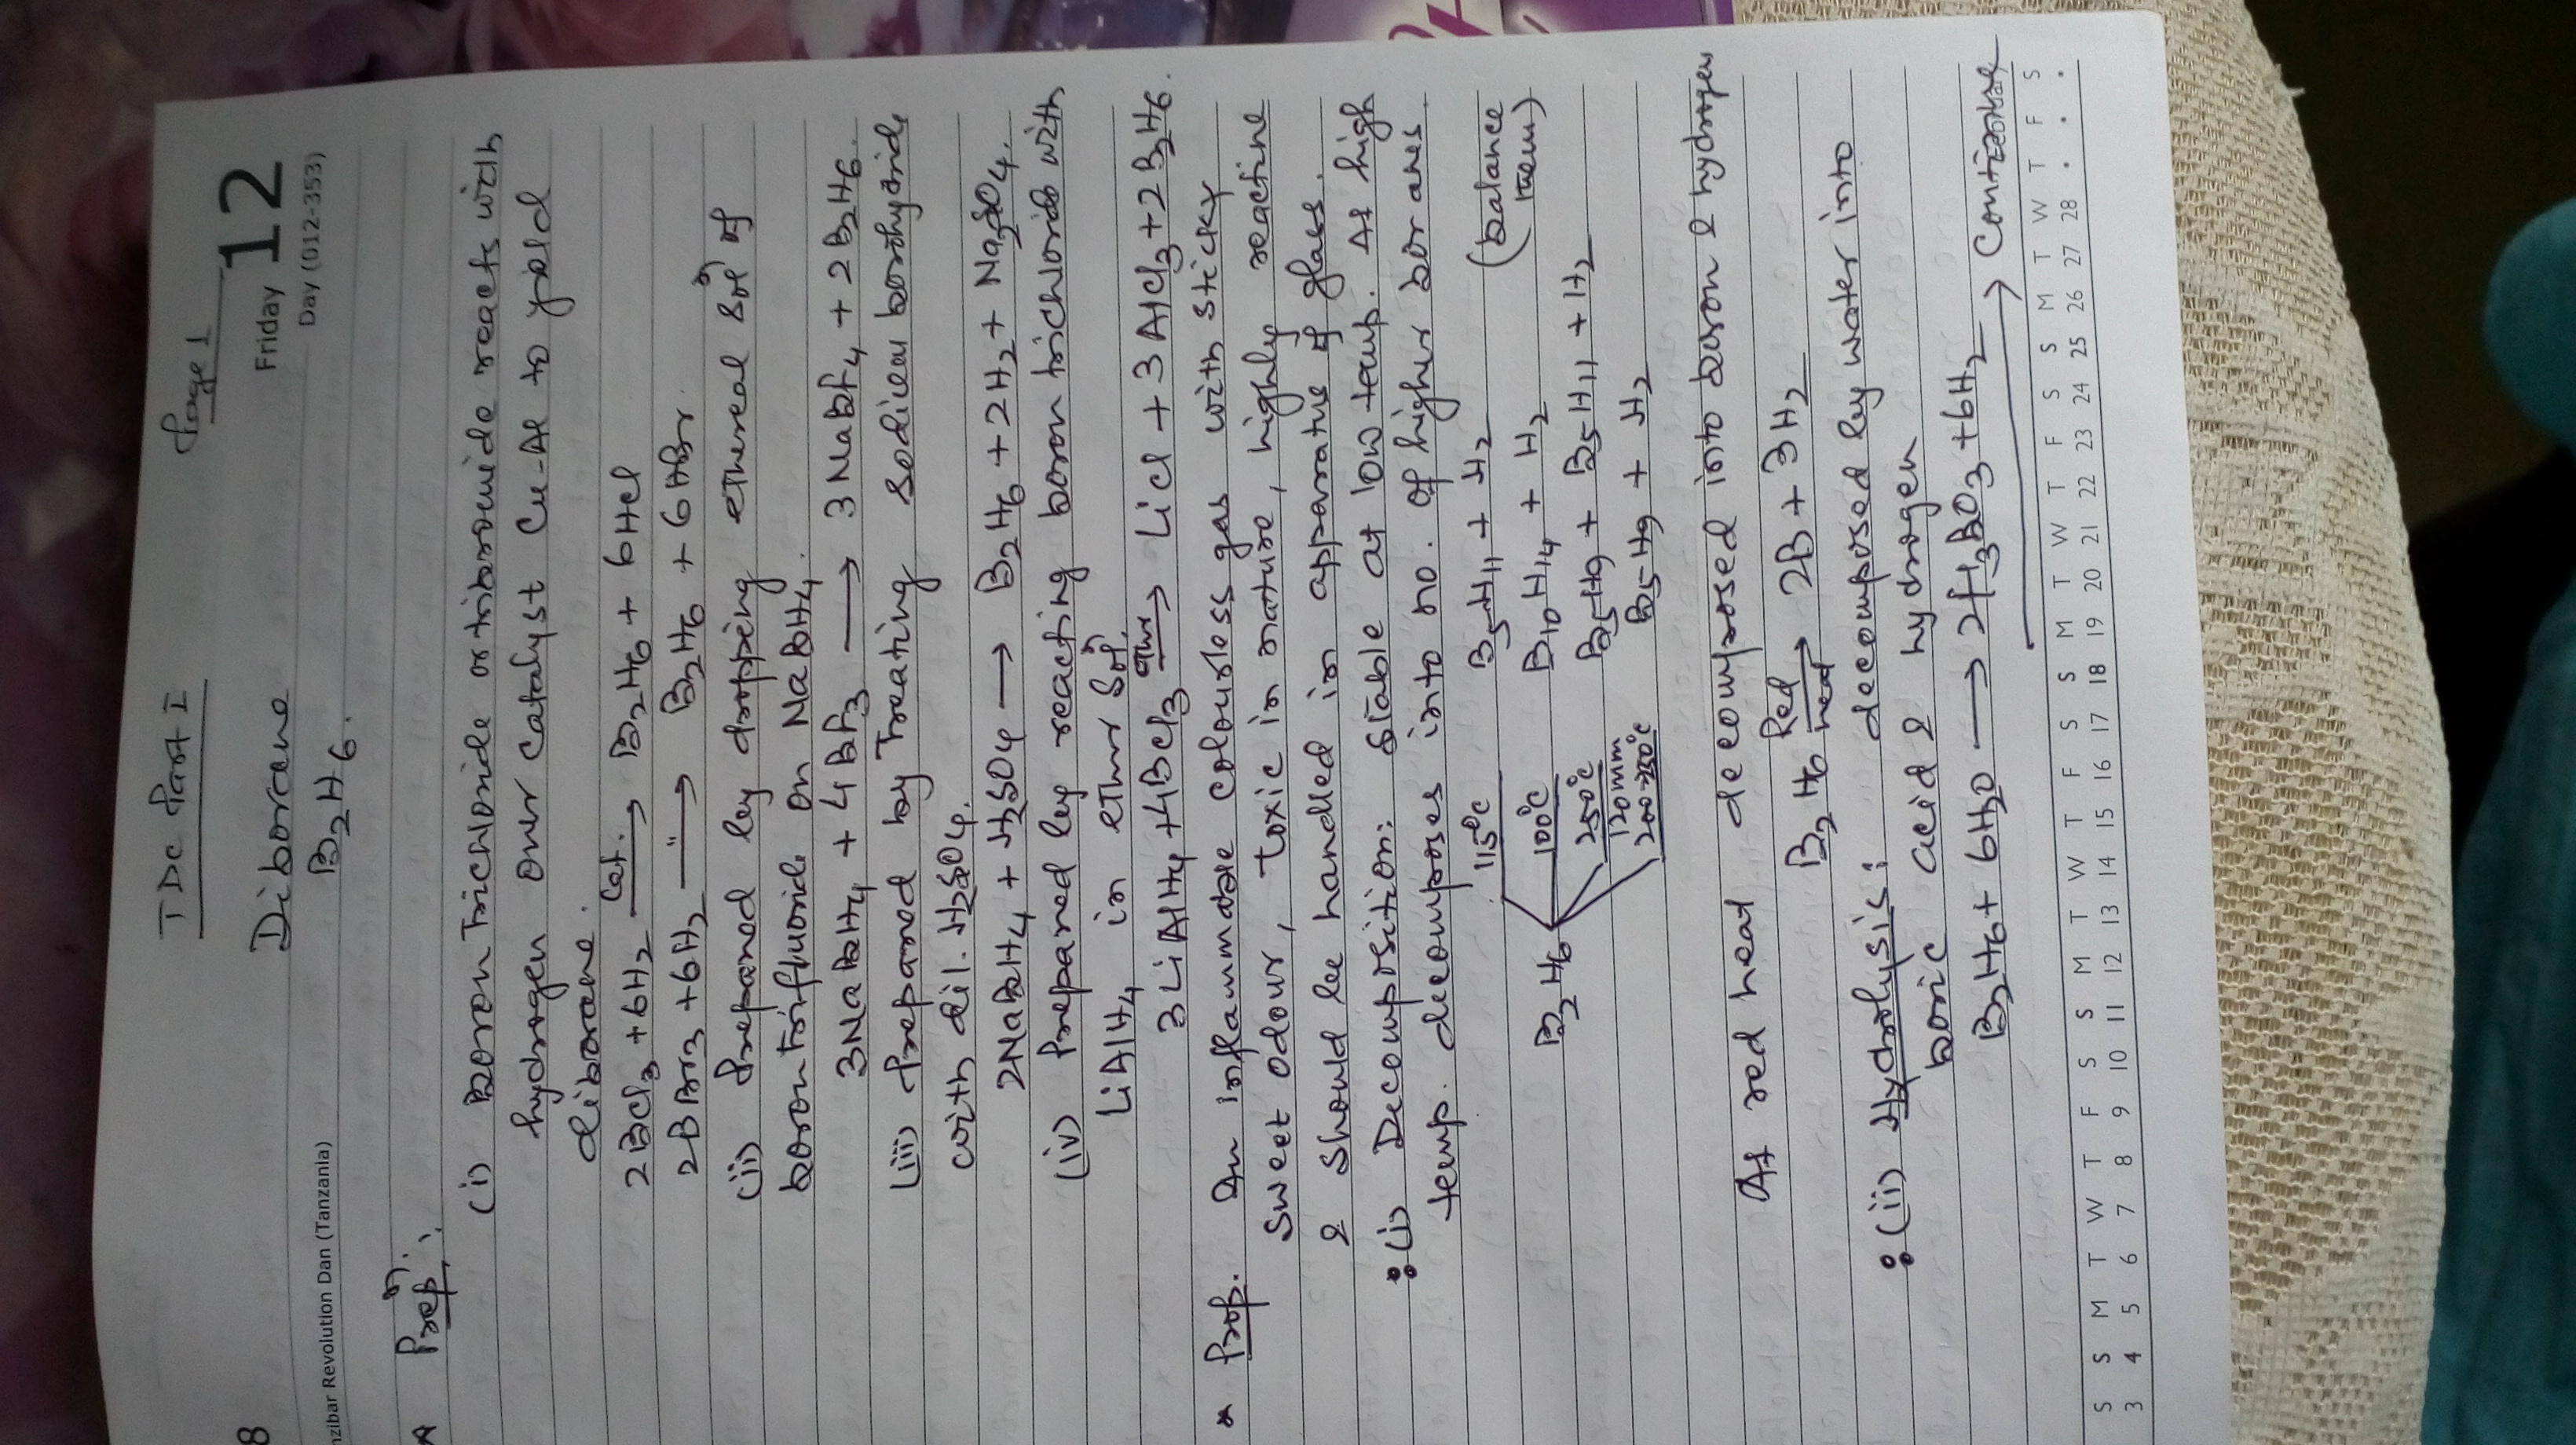 TDC Part I Page 1
8 Friday 12
Diborane Day (012-353)
nzibar Revolution Dan (Tanzania)
B₂H₆.
* Prepⁿ:
(i) Boron Trichloride or tribromide reacts with
hydrogen over catalyst Cu-Al to yield
diborane.
2BCl₃ + 6H₂ —Cat.→ B₂H₆ + 6HCl
2BBr₃ + 6H₂ —"→ B₂H₆ + 6HBr.
(ii) Prepared by dropping ethereal Solⁿ of
boron trifluoride on NaBH₄.
3NaBH₄ + 4BF₃ → 3NaBF₄ + 2B₂H₆.
(iii) Prepared by Treating Sodium borohydride
with dil. H₂SO₄.
2NaBH₄ + H₂SO₄ → B₂H₆ + 2H₂ + Na₂SO₄.
(iv) Prepared by reacting boron trichloride with
LiAlH₄ in ether Solⁿ.
3LiAlH₄ + 4BCl₃ —ether→ LiCl + 3AlCl₃ + 2B₂H₆.
* Prop. An inflammable colourless gas with sticky
sweet odour, toxic in nature, highly reactive
& should be handled in apparatus of glass.
(i) Decomposition: Stable at low temp. At high
temp. decomposes into no. of higher boranes.
115°C B₅H₁₁ + H₂ (balance
100°C B₁₀H₁₄ + H₂ them)
B₂H₆ 250°C B₅H₉ + B₅H₁₁ + H₂
120mm
200-250°C B₅H₉ + H₂
At red heat decomposed into boron & hydrogen
B₂H₆ —Red heat→ 2B + 3H₂
(ii) Hydrolysis: decomposed by water into
boric acid & hydrogen
B₂H₆ + 6H₂O → 2H₃BO₃ + 6H₂ → Continue
S S M T W T F S S M T W T F S S M T W T F S S M T W T F S
3 4 5 6 7 8 9 10 11 12 13 14 15 16 17 18 19 20 21 22 23 24 25 26 27 28 . . .